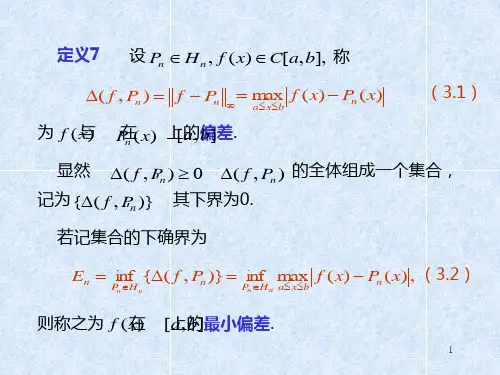 定义7 设 Pₙ ∈ Hₙ, f(x) ∈ C[a,b], 称
Δ(f, Pₙ) = ‖f − Pₙ‖∞ = max_{a≤x≤b} |f(x) − Pₙ(x)| (3.1)
为 f(x) 与 Pₙ(x) 在 [a,b] 上的偏差.
显然 Δ(f, Pₙ) ≥ 0 Δ(f, Pₙ) 的全体组成一个集合，
记为 {Δ(f, Pₙ)} 其下界为0.
若记集合的下确界为
Eₙ = inf_{Pₙ∈Hₙ} {Δ(f, Pₙ)} = inf_{Pₙ∈Hₙ} max_{a≤x≤b} |f(x) − Pₙ(x)|, (3.2)
则称之为 f(x) 在 [a,b] 上的最小偏差.
1